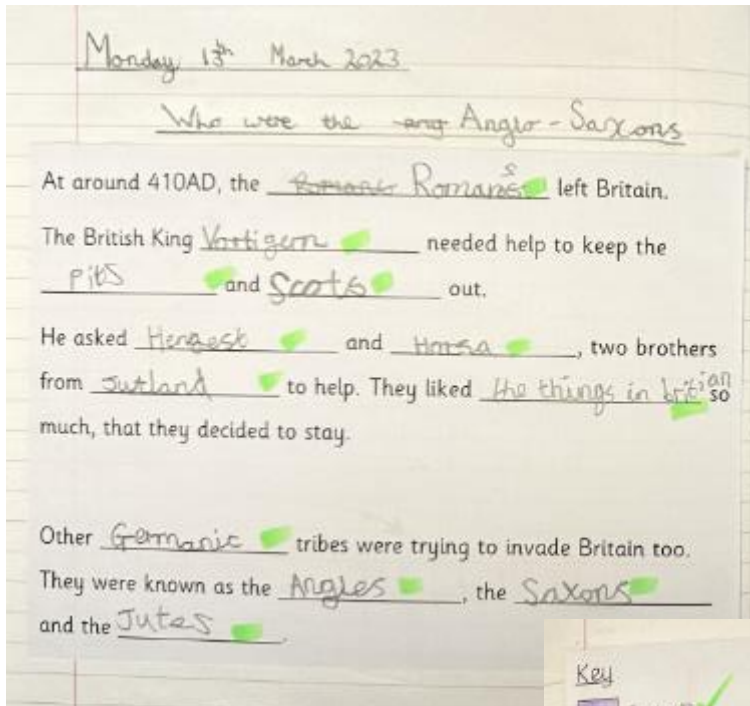 Monday 13th March 2023
Who were the ang Anglo-Saxons
At around 410AD, the Romans Romans left Britain.
The British King Vortigern needed help to keep the
pits and Scots out.
He asked Hengest and Horsa, two brothers
from Jutland to help. They liked the things in britian so
much, that they decided to stay.
Other Germanic tribes were trying to invade Britain too.
They were known as the Angles, the Saxons
and the Jutes.
Key